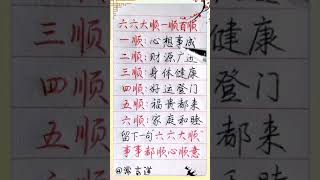 六六大顺一顺百顺
一顺:心想事成
二顺:财源广进
三顺:身体健康
四顺:好运登门
五顺:福贵都来
六顺:家庭和睦
留下一句"六六大顺"
事事都顺心顺意
三顺
四顺
五顺
健康
登门
都来